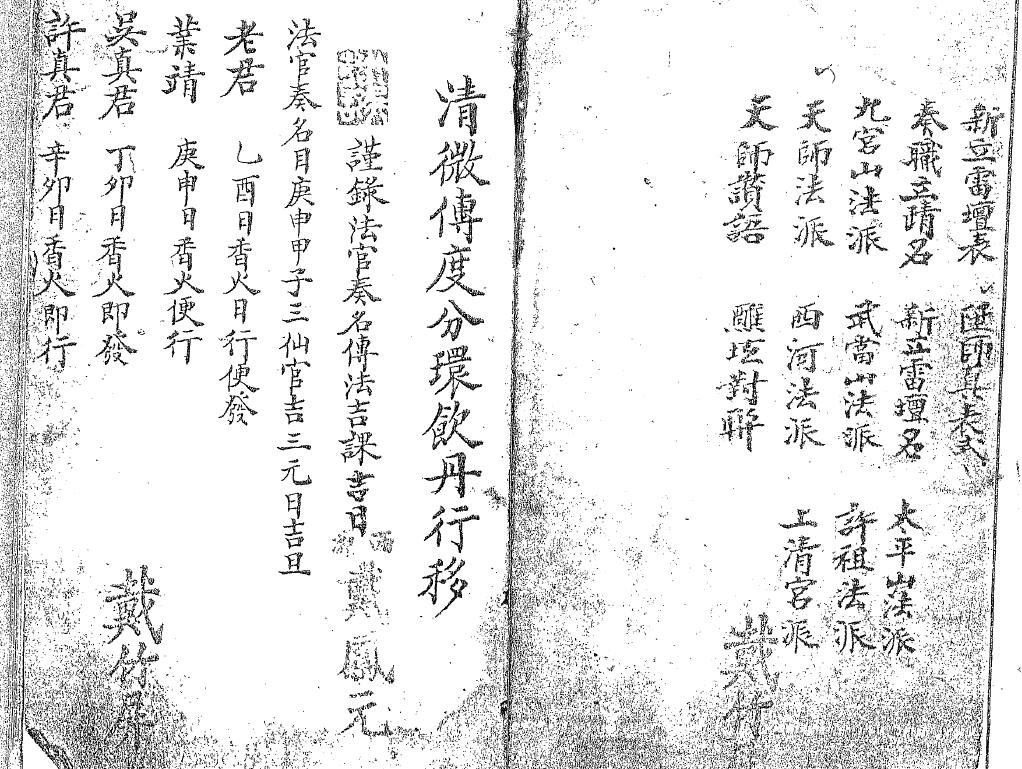 新立雷壇表　陞師真表式
奏職立靖名　新立雷壇名　太平山法派
九宮山法派　武當山法派　許祖法派
天師法派　西河法派　上清宮派
天師讚語　醮垃對聯
戴竹
清微傳度分環飲丹行移
謹錄法官奏名傳法吉課吉日　戴鳳元
法官奏名目庚申甲子三仙官吉三元日吉旦
老君　乙酉日香火日行便發
葉靖　庚申日香火便行
吳真君　丁卯日香火即發
許真君　辛卯日香火即行
戴竹屏